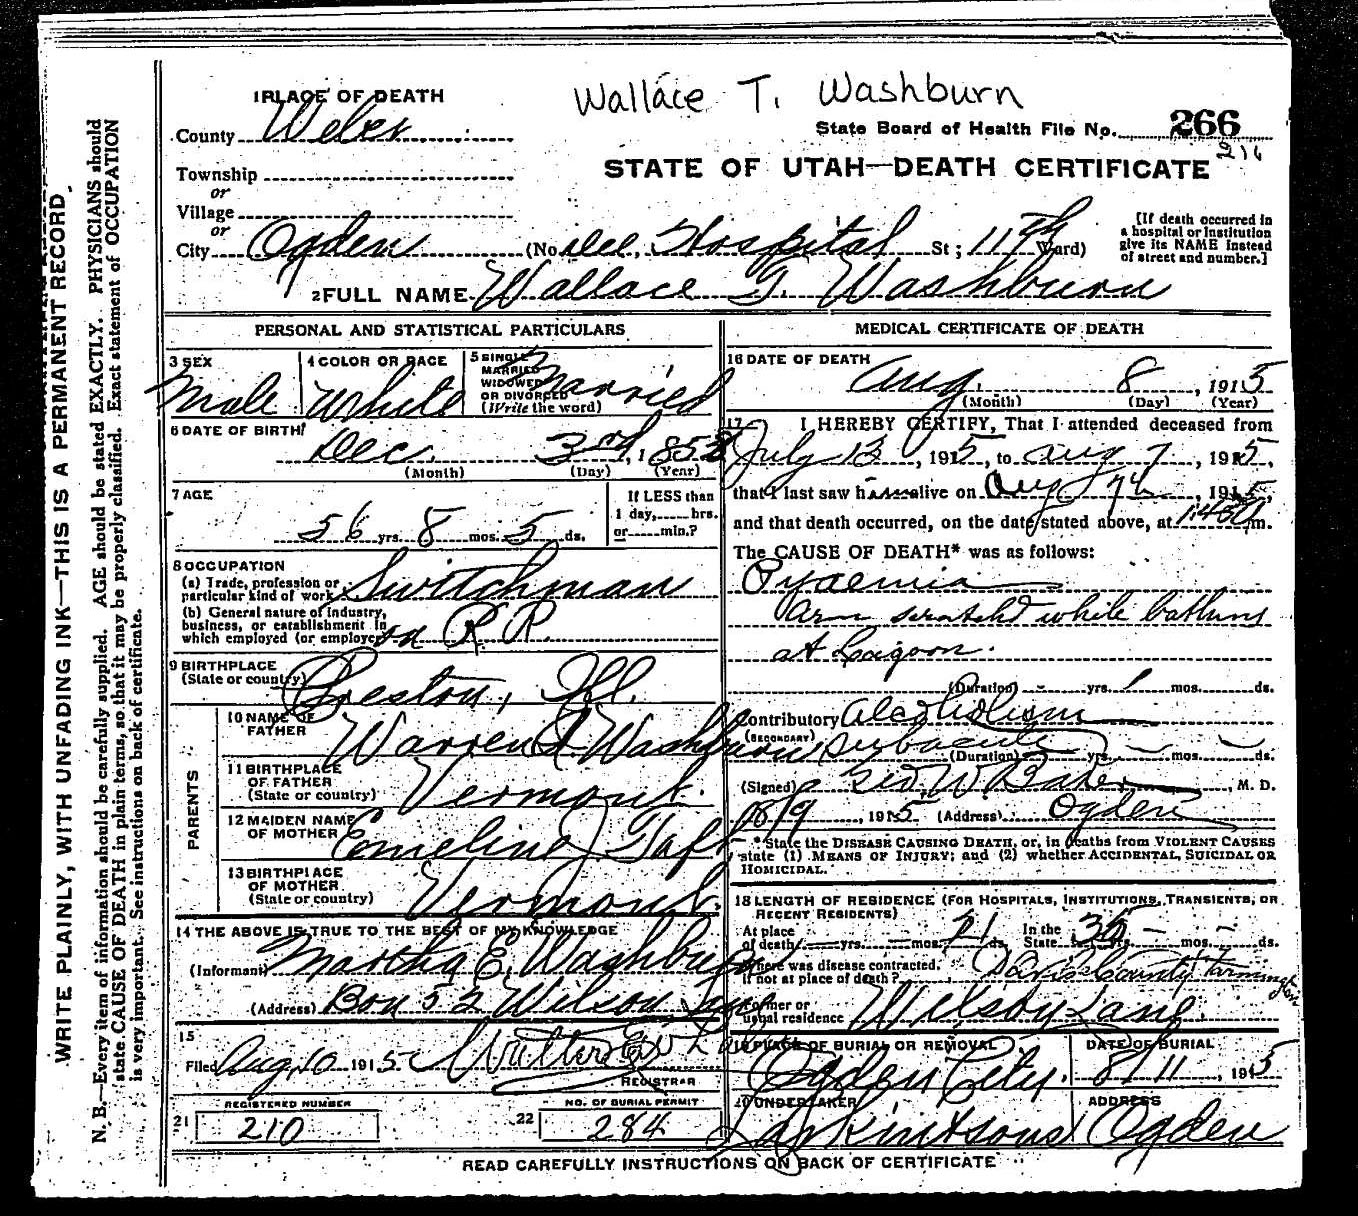 Wallace T. Washburn
1 PLACE OF DEATH
County Weber
State Board of Health File No. 266
216
STATE OF UTAH—DEATH CERTIFICATE
Township
or
Village
or
City Ogden (No. Dee Hospital St; 11th Ward)
[If death occurred in
a hospital or institution
give its NAME instead
of street and number.]
2 FULL NAME Wallace T. Washburn
PERSONAL AND STATISTICAL PARTICULARS
3 SEX
Male
4 COLOR OR RACE
White
5 SINGLE
MARRIED
WIDOWED
OR DIVORCED
(Write the word)
Married
6 DATE OF BIRTH
Dec. 3rd, 1858
(Month) (Day) (Year)
7 AGE
56 yrs. 8 mos. 5 ds.
If LESS than
1 day, hrs.
or min.?
8 OCCUPATION
(a) Trade, profession or
particular kind of work Switchman
(b) General nature of industry,
business, or establishment in
which employed (or employer) on R.R.
9 BIRTHPLACE
(State or country) Preston, Ill.
PARENTS
10 NAME OF
FATHER Warren Washburn
11 BIRTHPLACE
OF FATHER
(State or country) Vermont.
12 MAIDEN NAME
OF MOTHER Emeline Taft
13 BIRTHPLACE
OF MOTHER
(State or country) Vermont.
14 THE ABOVE IS TRUE TO THE BEST OF MY KNOWLEDGE
(Informant) Martha E. Washburn
(Address) Box 52 Wilson Lane
15
Filed Aug. 10 1915
REGISTRAR
21 REGISTERED NUMBER
210
22 NO. OF BURIAL PERMIT
284
MEDICAL CERTIFICATE OF DEATH
16 DATE OF DEATH
Aug. 8, 1915
(Month) (Day) (Year)
17 I HEREBY CERTIFY, That I attended deceased from
July 13, 1915, to Aug 7, 1915,
that I last saw him alive on Aug 7th, 1915,
and that death occurred, on the date stated above, at 1:45 A m.
The CAUSE OF DEATH* was as follows:
Pyaemia
arm scratched while bathing
at Lagoon.
(Duration) - yrs. 1 mos. ds.
Contributory Alcoholism
(SECONDARY) subacute
(Duration) yrs. — mos. — ds.
(Signed) Geo. W. Baker, M. D.
8/9, 1915 (Address) Ogden
*State the DISEASE CAUSING DEATH, or, in deaths from VIOLENT CAUSES
state (1) MEANS OF INJURY; and (2) whether ACCIDENTAL, SUICIDAL OR
HOMICIDAL.
18 LENGTH OF RESIDENCE (FOR HOSPITALS, INSTITUTIONS, TRANSIENTS, OR
RECENT RESIDENTS)
At place
of death — yrs. — mos. 21 ds.
In the
State 35 yrs. — mos. — ds.
Where was disease contracted,
if not at place of death? Davis County Farmington
Former or
usual residence Wilson Lane
19 PLACE OF BURIAL OR REMOVAL
Ogden City.
DATE OF BURIAL
8/11, 1915
20 UNDERTAKER
Larkin & Sons
ADDRESS
Ogden
READ CAREFULLY INSTRUCTIONS ON BACK OF CERTIFICATE
WRITE PLAINLY, WITH UNFADING INK—THIS IS A PERMANENT RECORD.
N. B.—Every item of information should be carefully supplied. AGE should be stated EXACTLY. PHYSICIANS should
state CAUSE OF DEATH in plain terms, so that it may be properly classified. Exact statement of OCCUPATION
is very important. See instructions on back of certificate.